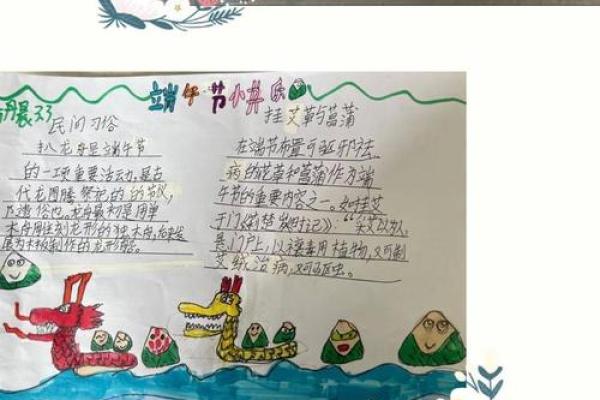 端午节小
民间习俗
扒龙舟是端午节
的一项重要活动,是古
代龙图腾祭祀的的节仪,
乃遗俗也。龙舟最初是用单
木舟 刻龙形的独木舟,后来发
展为木板制作的龙形船。
挂艾草与菖蒲
在端节布置可驱邪祛
病的花草和菖蒲作为端
午节的重要内容之一。如挂艾
于门《荆楚岁时记》:“采艾以为人,
悬门户上,以禳毒用植物,又可制
艾绒治病,又可驱虫。